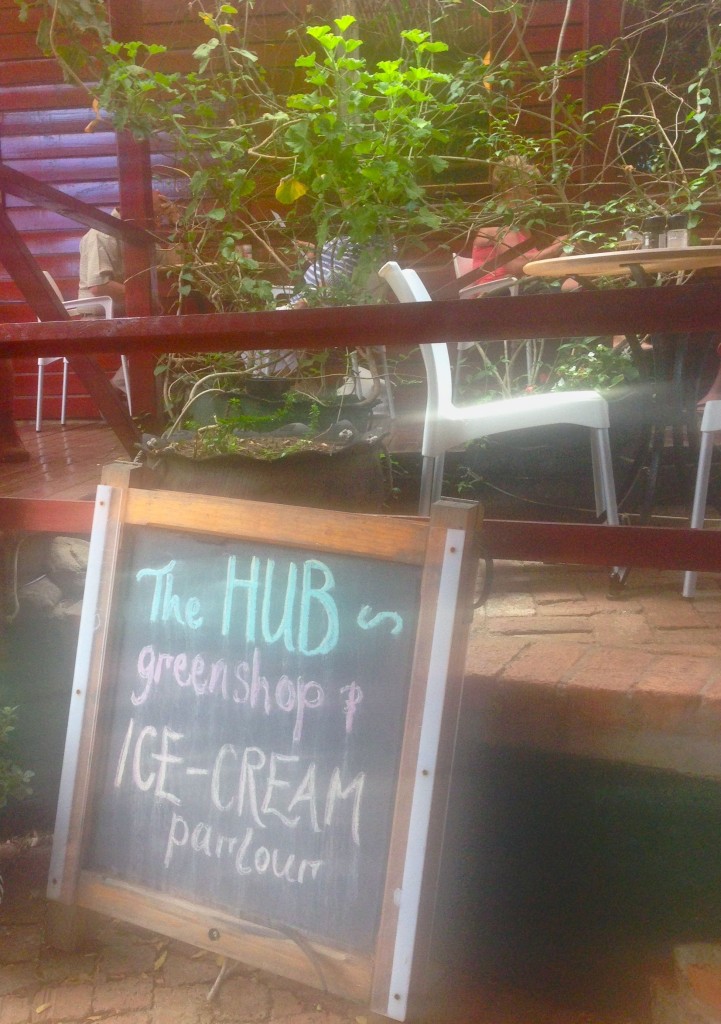 The HUB ~
greenshop &
ICE-CREAM
parlour